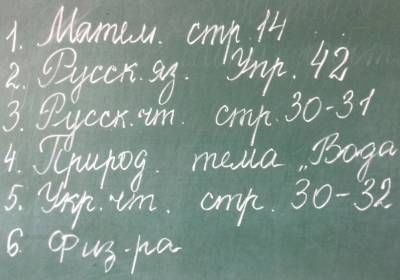 1. Матем. стр. 14
2. Русск. яз. Упр. 42
3. Русск. чт. стр. 30-31
4. Природ. тема „Вода
5. Укр. чт. стр. 30-32
6 Физ-ра